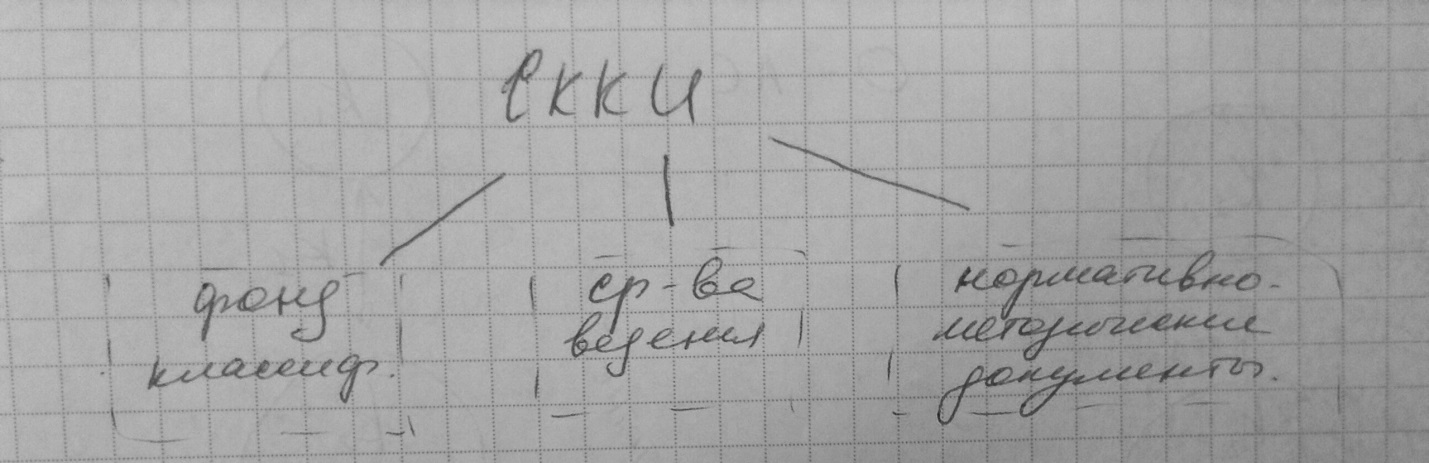 ЕККИ
фонд
классиф.
ср-ва
ведения
нормативно-
методические
документы.